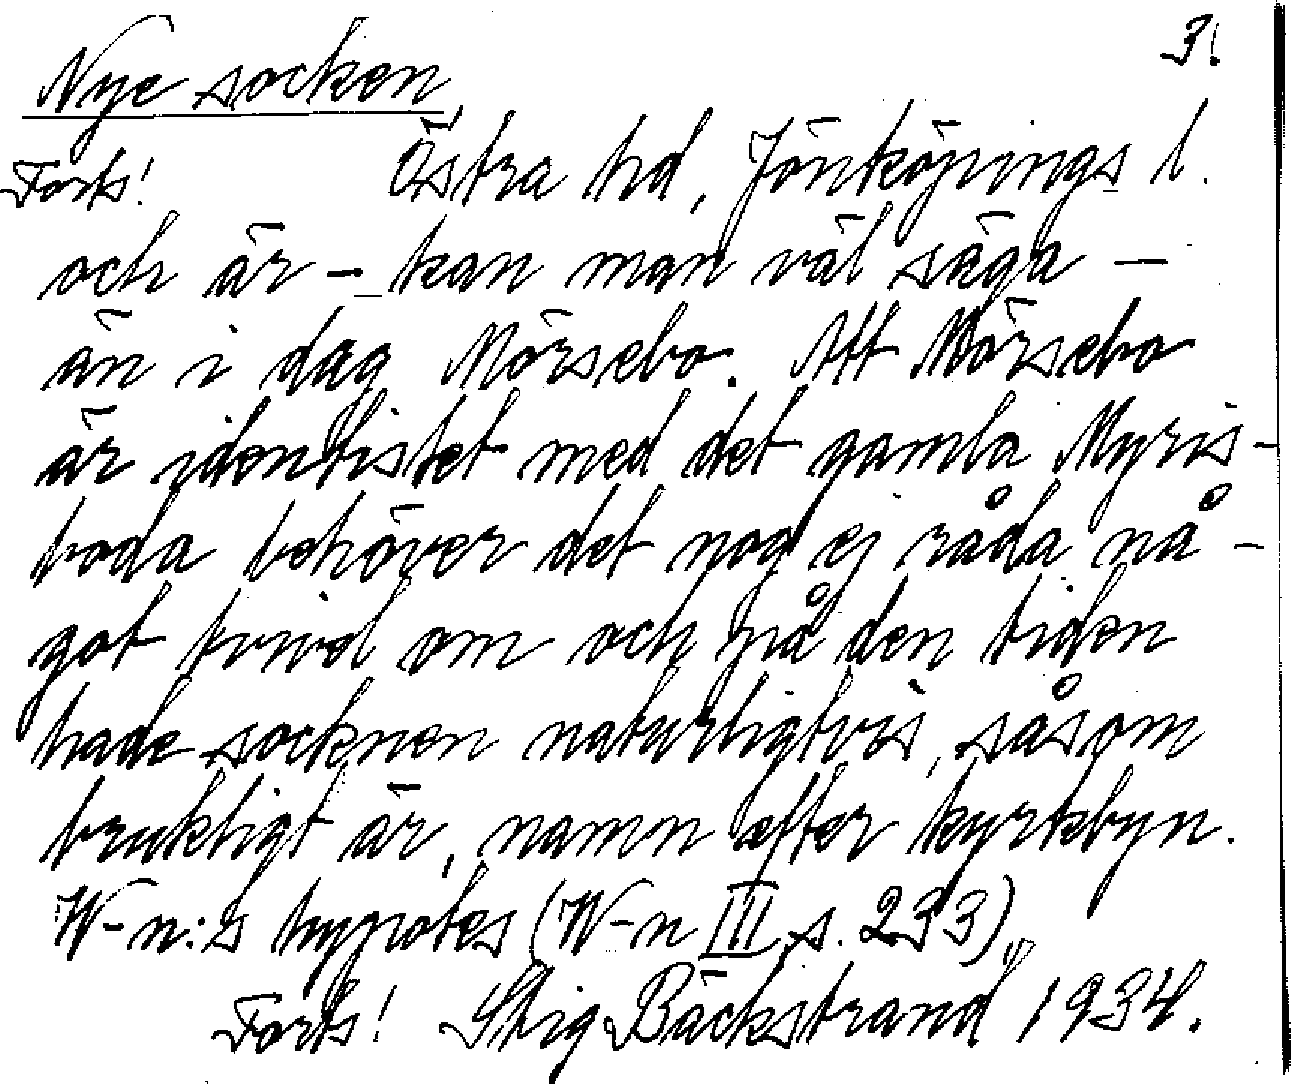 3.
Nye socken
Forts! Östra hd, Jönköpings l.
och är - kan man väl säga -
än i dag Mörsebo. Att Mörsebo
är identistet med det gamla Myris-
boda behöver det nog ej råda nå-
got tvivel om och på den tiden
hade socknen naturligtvis, såsom
brukligt är, namn efter kyrkbyn.
W-n:s hypotes (W-n III s. 233)
Forts! Stig Bäckstrand 1934.